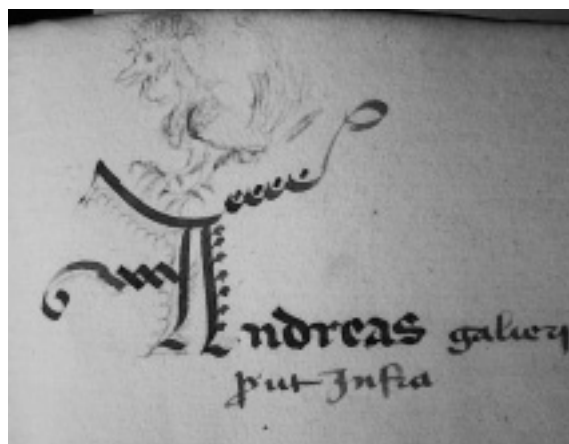 Andreas galieri
prout Infra